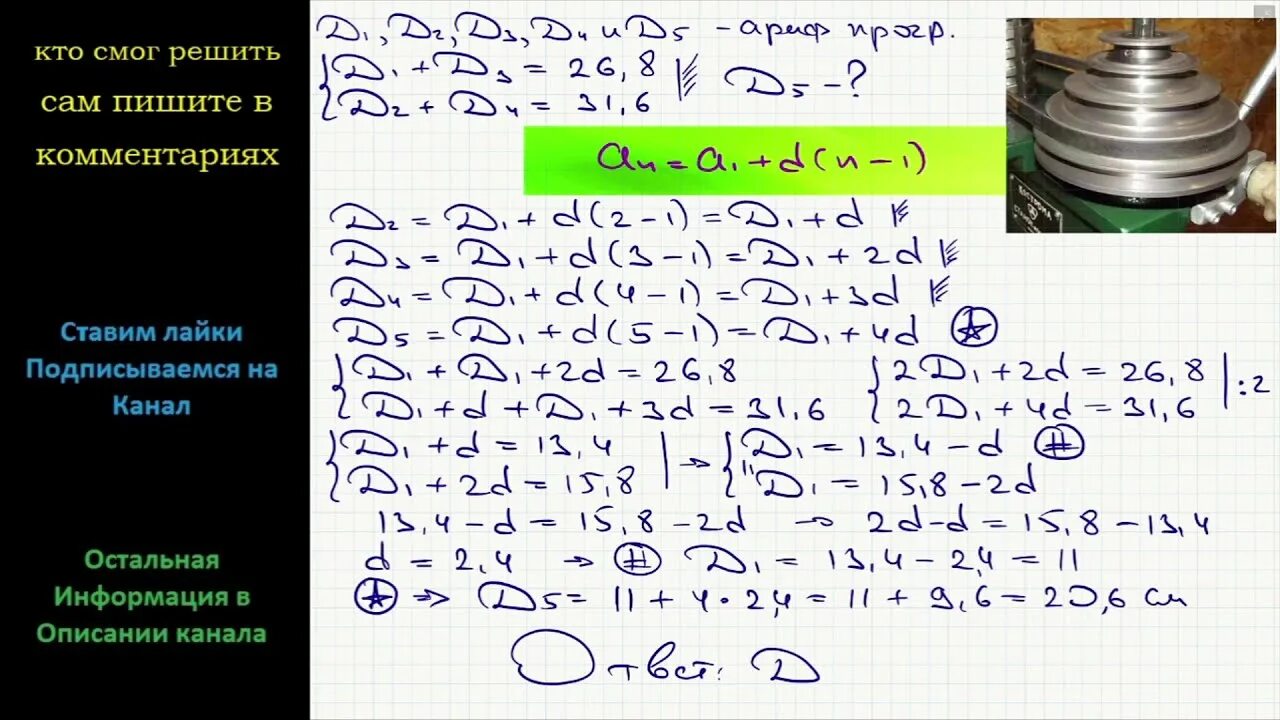 кто смог решить
сам пишите в
комментариях
Ставим лайки
Подписываемся на
Канал
Остальная
Информация в
Описании канала
D₁, D₂, D₃, D₄ и D₅ - ариф прогр.
D₁ + D₃ = 26,8
D₂ + D₄ = 31,6
D₅ - ?
aₙ = a₁ + d(n - 1)
D₂ = D₁ + d(2 - 1) = D₁ + d
D₃ = D₁ + d(3 - 1) = D₁ + 2d
D₄ = D₁ + d(4 - 1) = D₁ + 3d
D₅ = D₁ + d(5 - 1) = D₁ + 4d
D₁ + D₁ + 2d = 26,8
D₁ + d + D₁ + 3d = 31,6
2D₁ + 2d = 26,8
2D₁ + 4d = 31,6 | : 2
D₁ + d = 13,4
D₁ + 2d = 15,8
→ D₁ = 13,4 - d #
D₁ = 15,8 - 2d
13,4 - d = 15,8 - 2d → 2d - d = 15,8 - 13,4
d = 2,4 → # D₁ = 13,4 - 2,4 = 11
⇒ D₅ = 11 + 4 · 2,4 = 11 + 9,6 = 20,6 см
Ответ: D